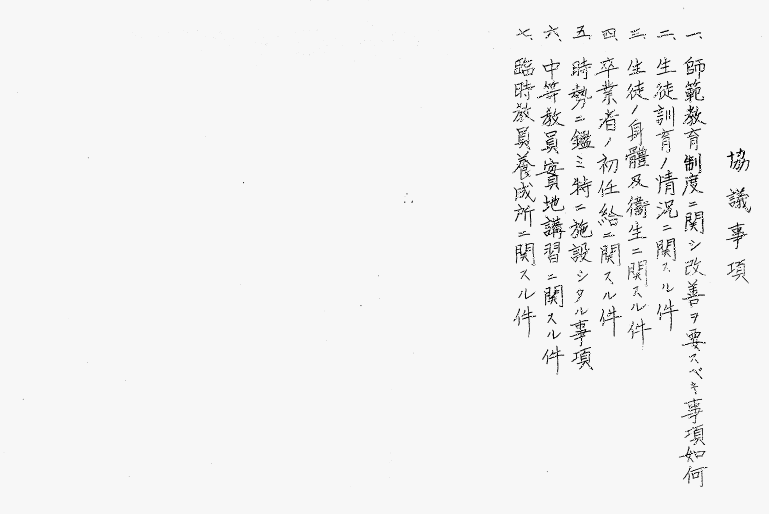 協議事項
一、師範教育制度ニ関シ改善ヲ要スベキ事項如何
二、生徒訓育ノ情況ニ関スル件
三、生徒ノ身體及衞生ニ関スル件
四、卒業者ノ初任給ニ関スル件
五、時勢ニ鑑ミ特ニ施設シタル事項
六、中等教員實地講習ニ関スル件
七、臨時教員養成所ニ関スル件